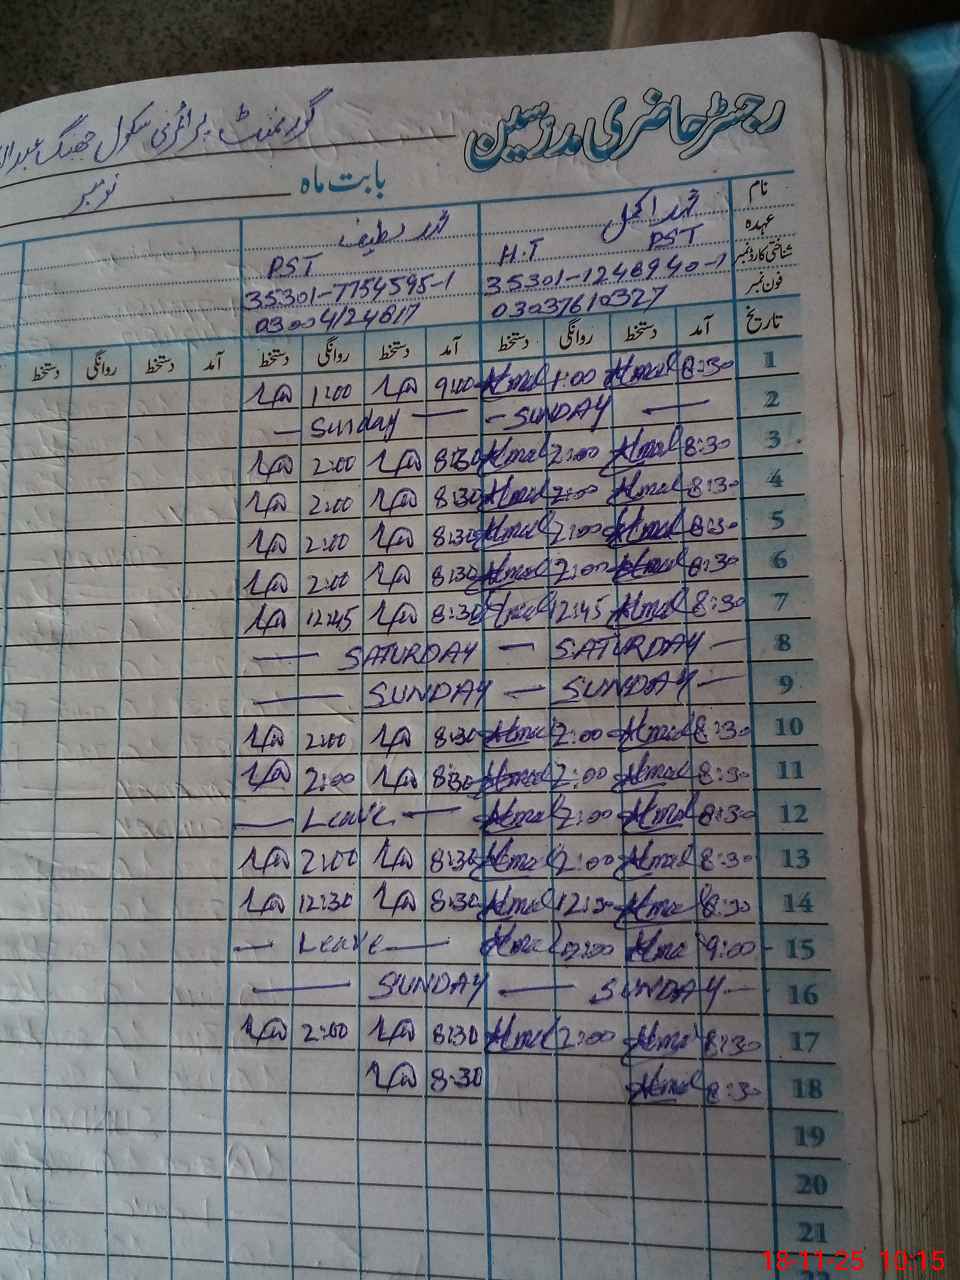 رجسٹر حاضری مدرسین گورنمنٹ پرائمری سکول جھنگ
بابت ماہ نومبر
نام محمد اکمل محمد لطیف
عہدہ PST H.T PST
شناختی کارڈ نمبر 35301-1246940-1 35301-7754595-1
فون نمبر 03037610327 03004124617
تاریخ آمد دستخط روانگی دستخط آمد دستخط روانگی دستخط آمد دستخط روانگی دستخط
1 8:30 Akmal 1:00 Akmal 9:00 1:00
2 — SUNDAY — — Sunday —
3 8:30 Akmal 2:00 Akmal 8:30 2:00
4 8:30 Akmal 2:00 Akmal 8:30 2:00
5 8:30 Akmal 2:00 Akmal 8:30 2:00
6 8:30 Akmal 2:00 Akmal 8:30 2:00
7 8:30 Akmal 12:45 Akmal 8:30 12:45
8 — SATURDAY — SATURDAY —
9 — SUNDAY — SUNDAY —
10 8:30 Akmal 2:00 Akmal 8:30 2:00
11 8:30 Akmal 2:00 Akmal 8:30 2:00
12 8:30 Akmal 2:00 Akmal — Leave —
13 8:30 Akmal 2:00 Akmal 8:30 2:00
14 8:30 Akmal 12:30 Akmal 8:30 12:30
15 9:00 Akmal 12:00 Akmal — Leave —
16 — SUNDAY — SUNDAY —
17 8:30 Akmal 2:00 Akmal 8:30 2:00
18 8:30 Akmal 8:30
19
20
21
18-11-25 10:15